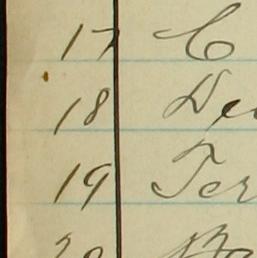 17 C
18 Dec
19 Ter
20